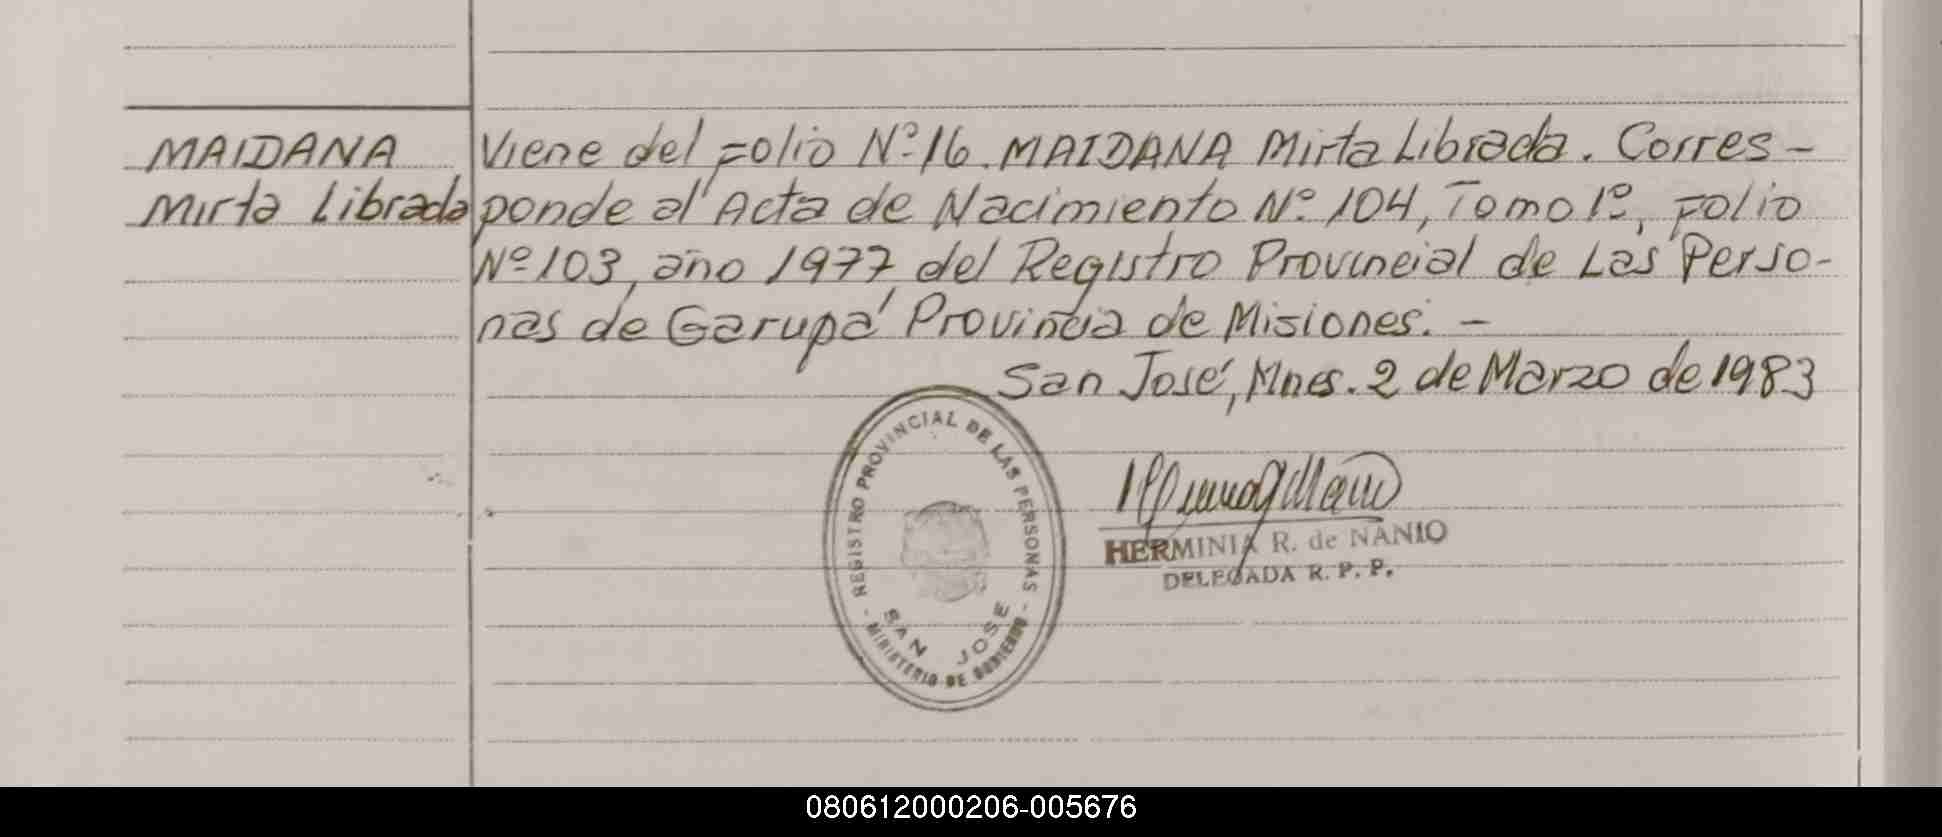 MAIDANA
Mirta Librada
Viene del Folio Nº 16. MAIDANA Mirta Librada. Corres-
ponde al Acta de Nacimiento Nº 104, Tomo 1º, Folio
Nº 103, año 1977, del Registro Provincial de Las Perso-
nas de Garupá Provincia de Misiones. -
San José, Mnes. 2 de Marzo de 1983
REGISTRO PROVINCIAL DE LAS PERSONAS
SAN JOSE
- MINISTERIO DE GOBIERNO -
HERMINIA R. de NANIO
DELEGADA R. P. P.
080612000206-005676